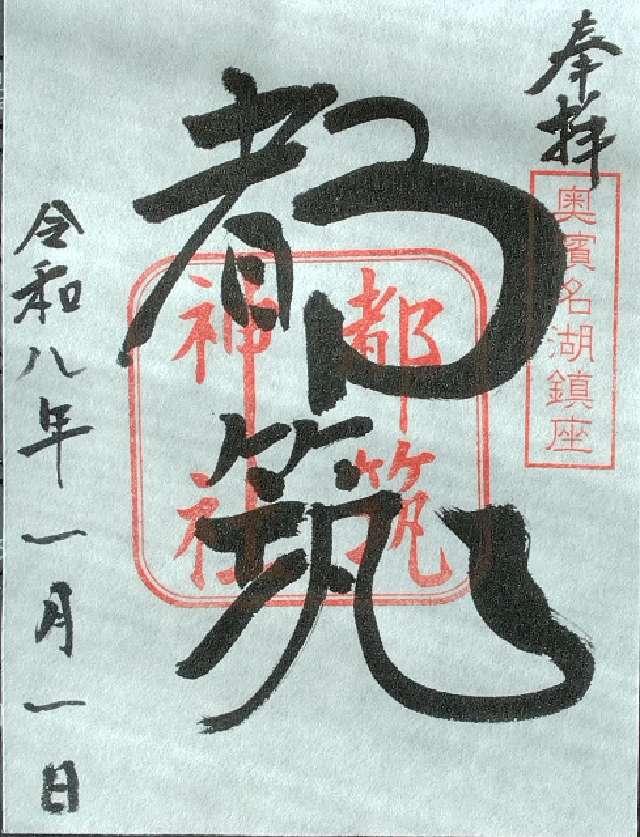 奉拝
奥濱名湖鎮座
都筑
都筑
神社
令和八年一月一日